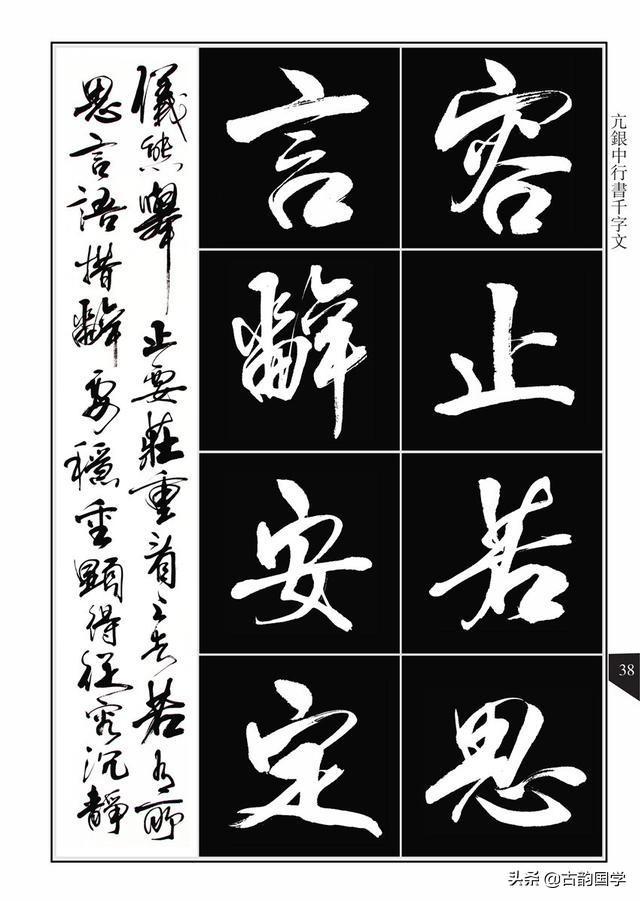 亢銀中行書千字文
容止若思
言辭安定
儀態舉止要莊重看上去若有所
思言語措辭要穩重顯得從容沉靜
38
头条 @古韵国学